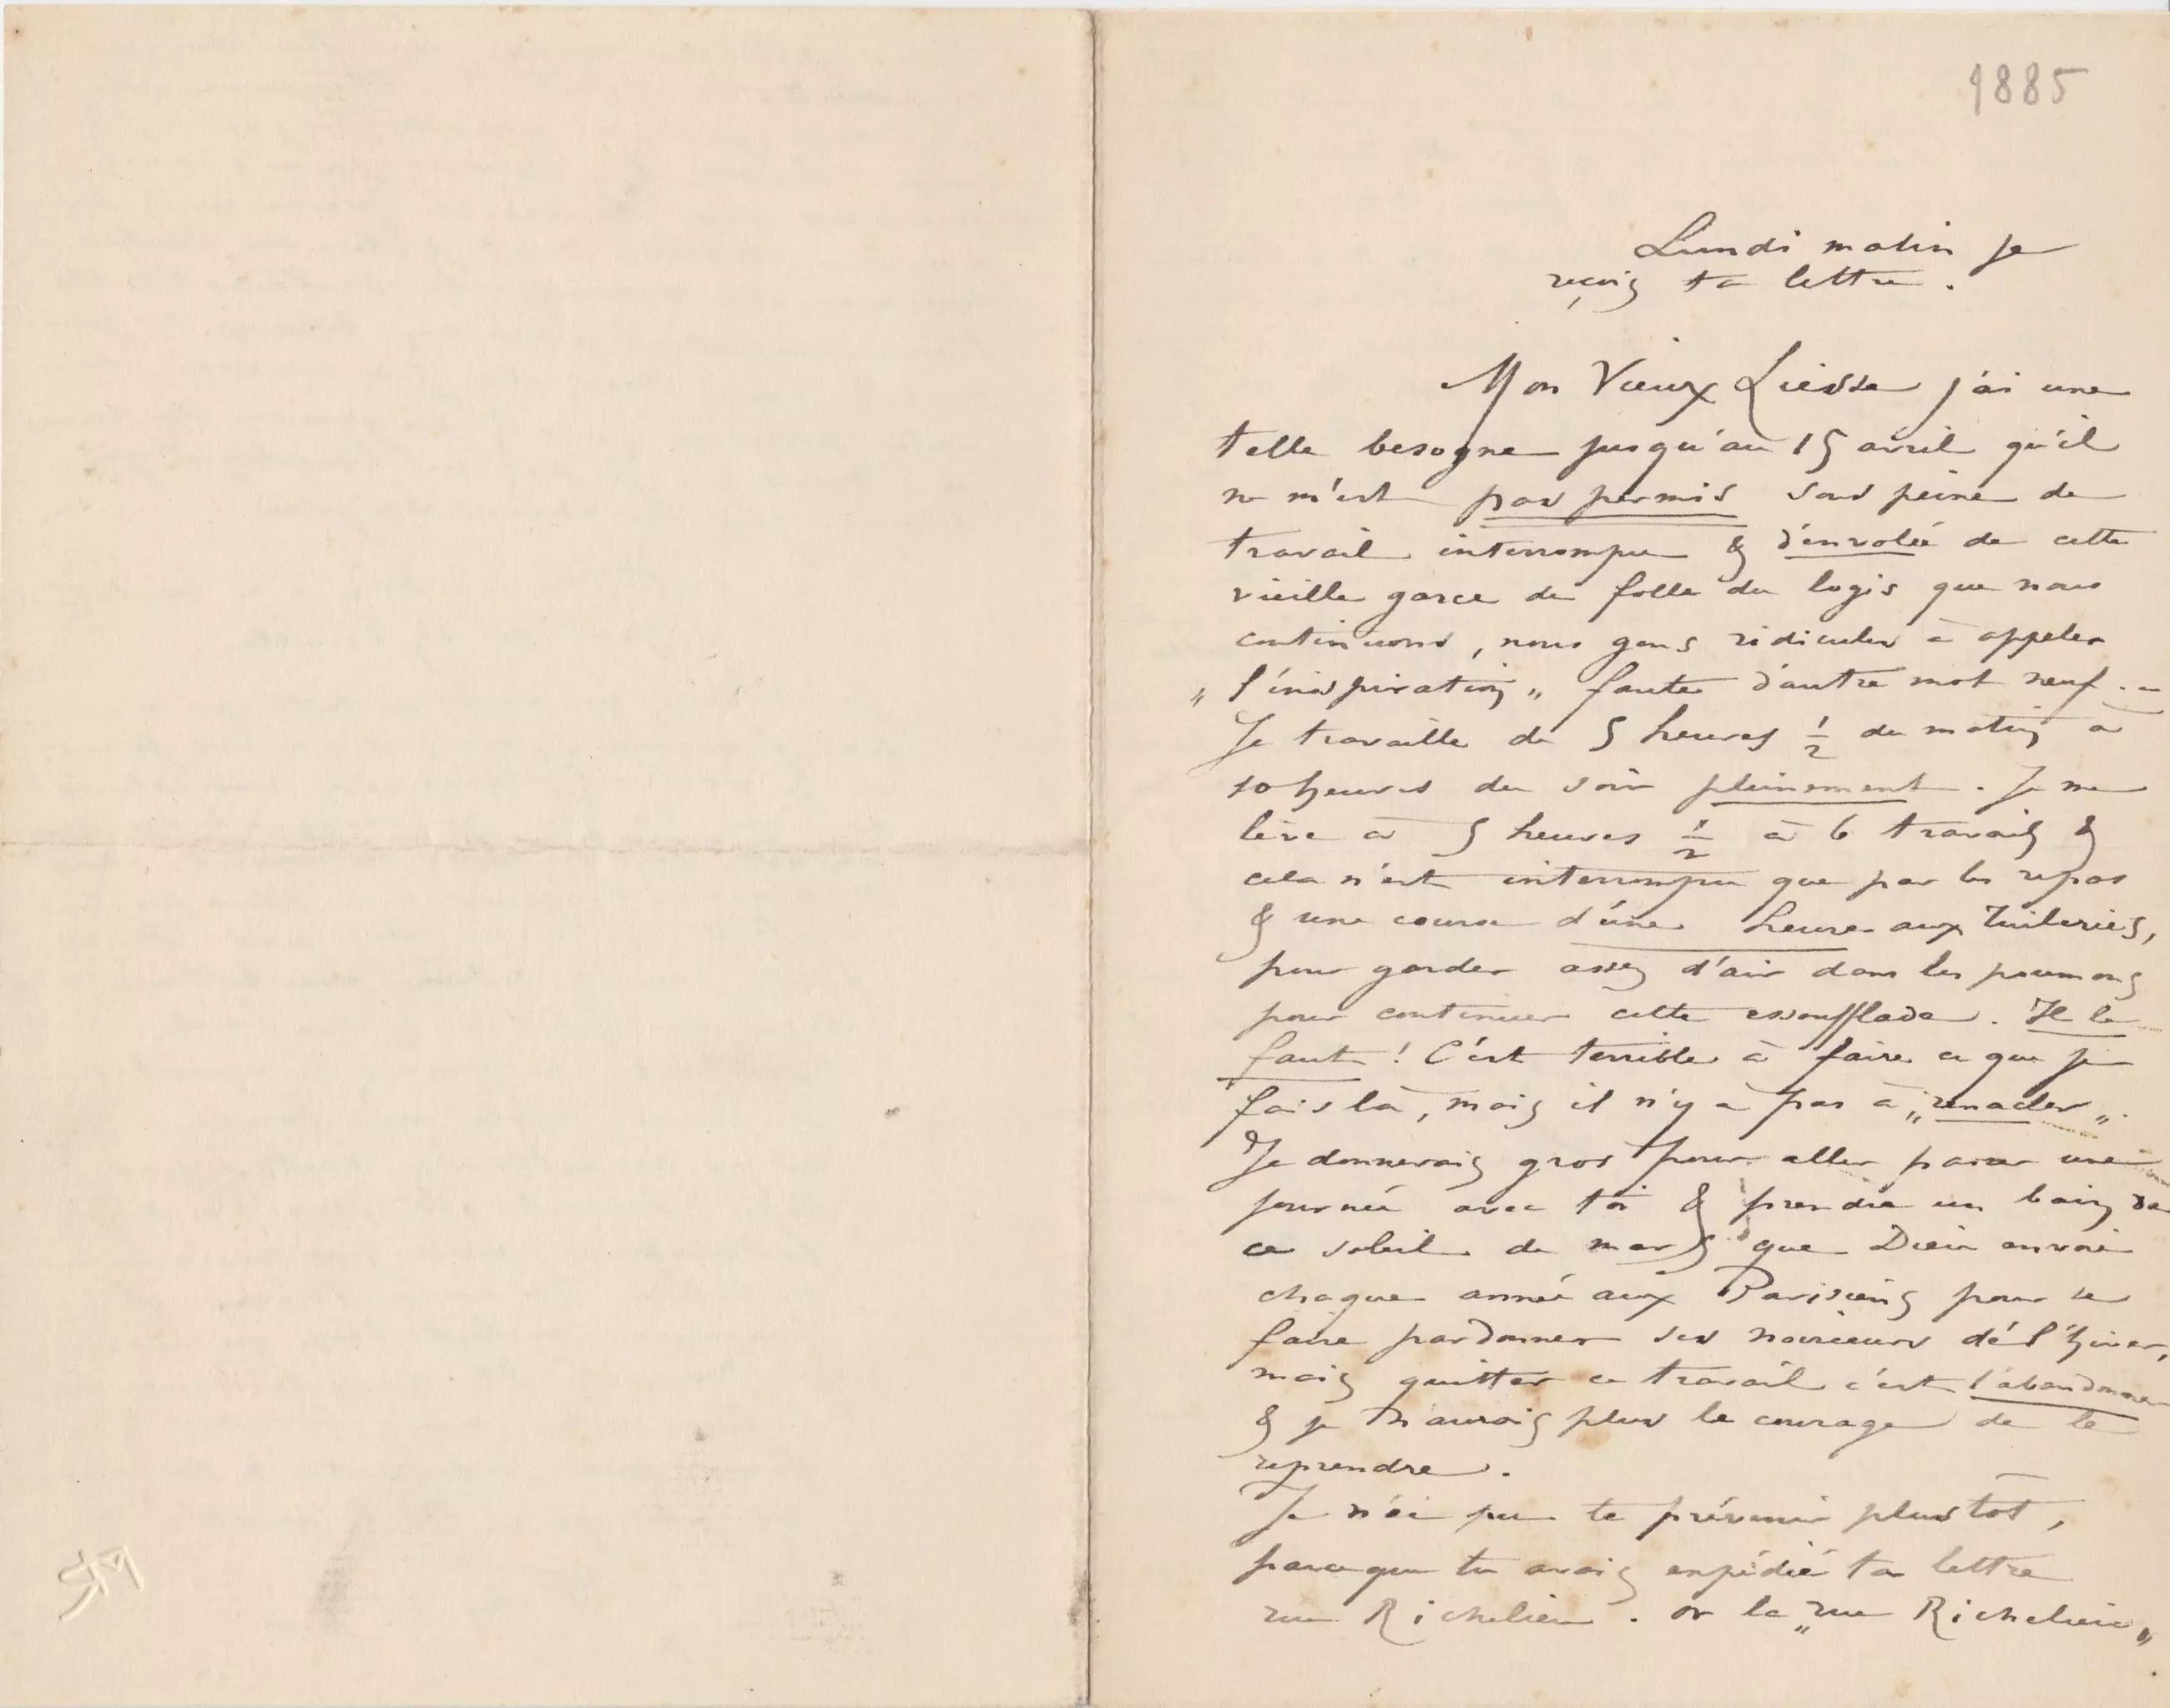 1885
Lundi matin je
reçois ta lettre.
Mon Vieux Liesse j'ai une
telle besogne jusqu'au 15 avril qu'il
ne m'est pas permis sous peine de
travail interrompu & d'envolée de cette
vieille garce de folle du logis que nous
continuons, nous gens ridicules à appeler
„ l'inspiration „ faute d'autre mot neuf . -
Je travaille de 5 heures 1/2 du matin à
10 heures du soir pleinement. Je me
lève à 5 heures 1/2 à 6 travail &
cela n'est interrompu que par les repas
& une course d'une heure aux Tuileries,
pour garder assez d'air dans les poumons
pour continuer cette essoufflade. Il le
faut ! C'est terrible à faire ce que je
fais là, mais il n'y a pas à „ renacler „.
Je donnerais gros pour aller passer une
journée avec toi & prendre un bain de
ce soleil de mars que Dieu envoie
chaque année aux Parisiens pour se
faire pardonner ses noirceurs de l'hiver,
mais quitter ce travail c'est l'abandonner
& je n'aurais plus le courage de le
reprendre.
Je n'ai pu te prévenir plus tôt,
parce que tu avais expédié ta lettre
rue Richelieu. or la „ rue Richelieu „